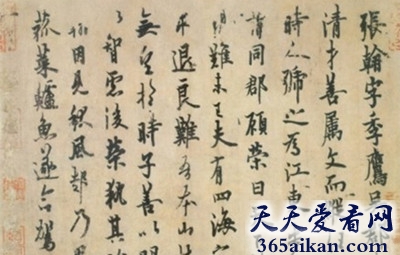 張翰字季鷹吳郡
清才善屬文而
時人號之為江東
謂同郡顧榮曰
難未已夫有四海
求退良難吾本山
無望於時子善以明
智慮後榮執其
因見秋風起乃
菰菜鱸魚遂命駕
天天爱看网
365aikan.com